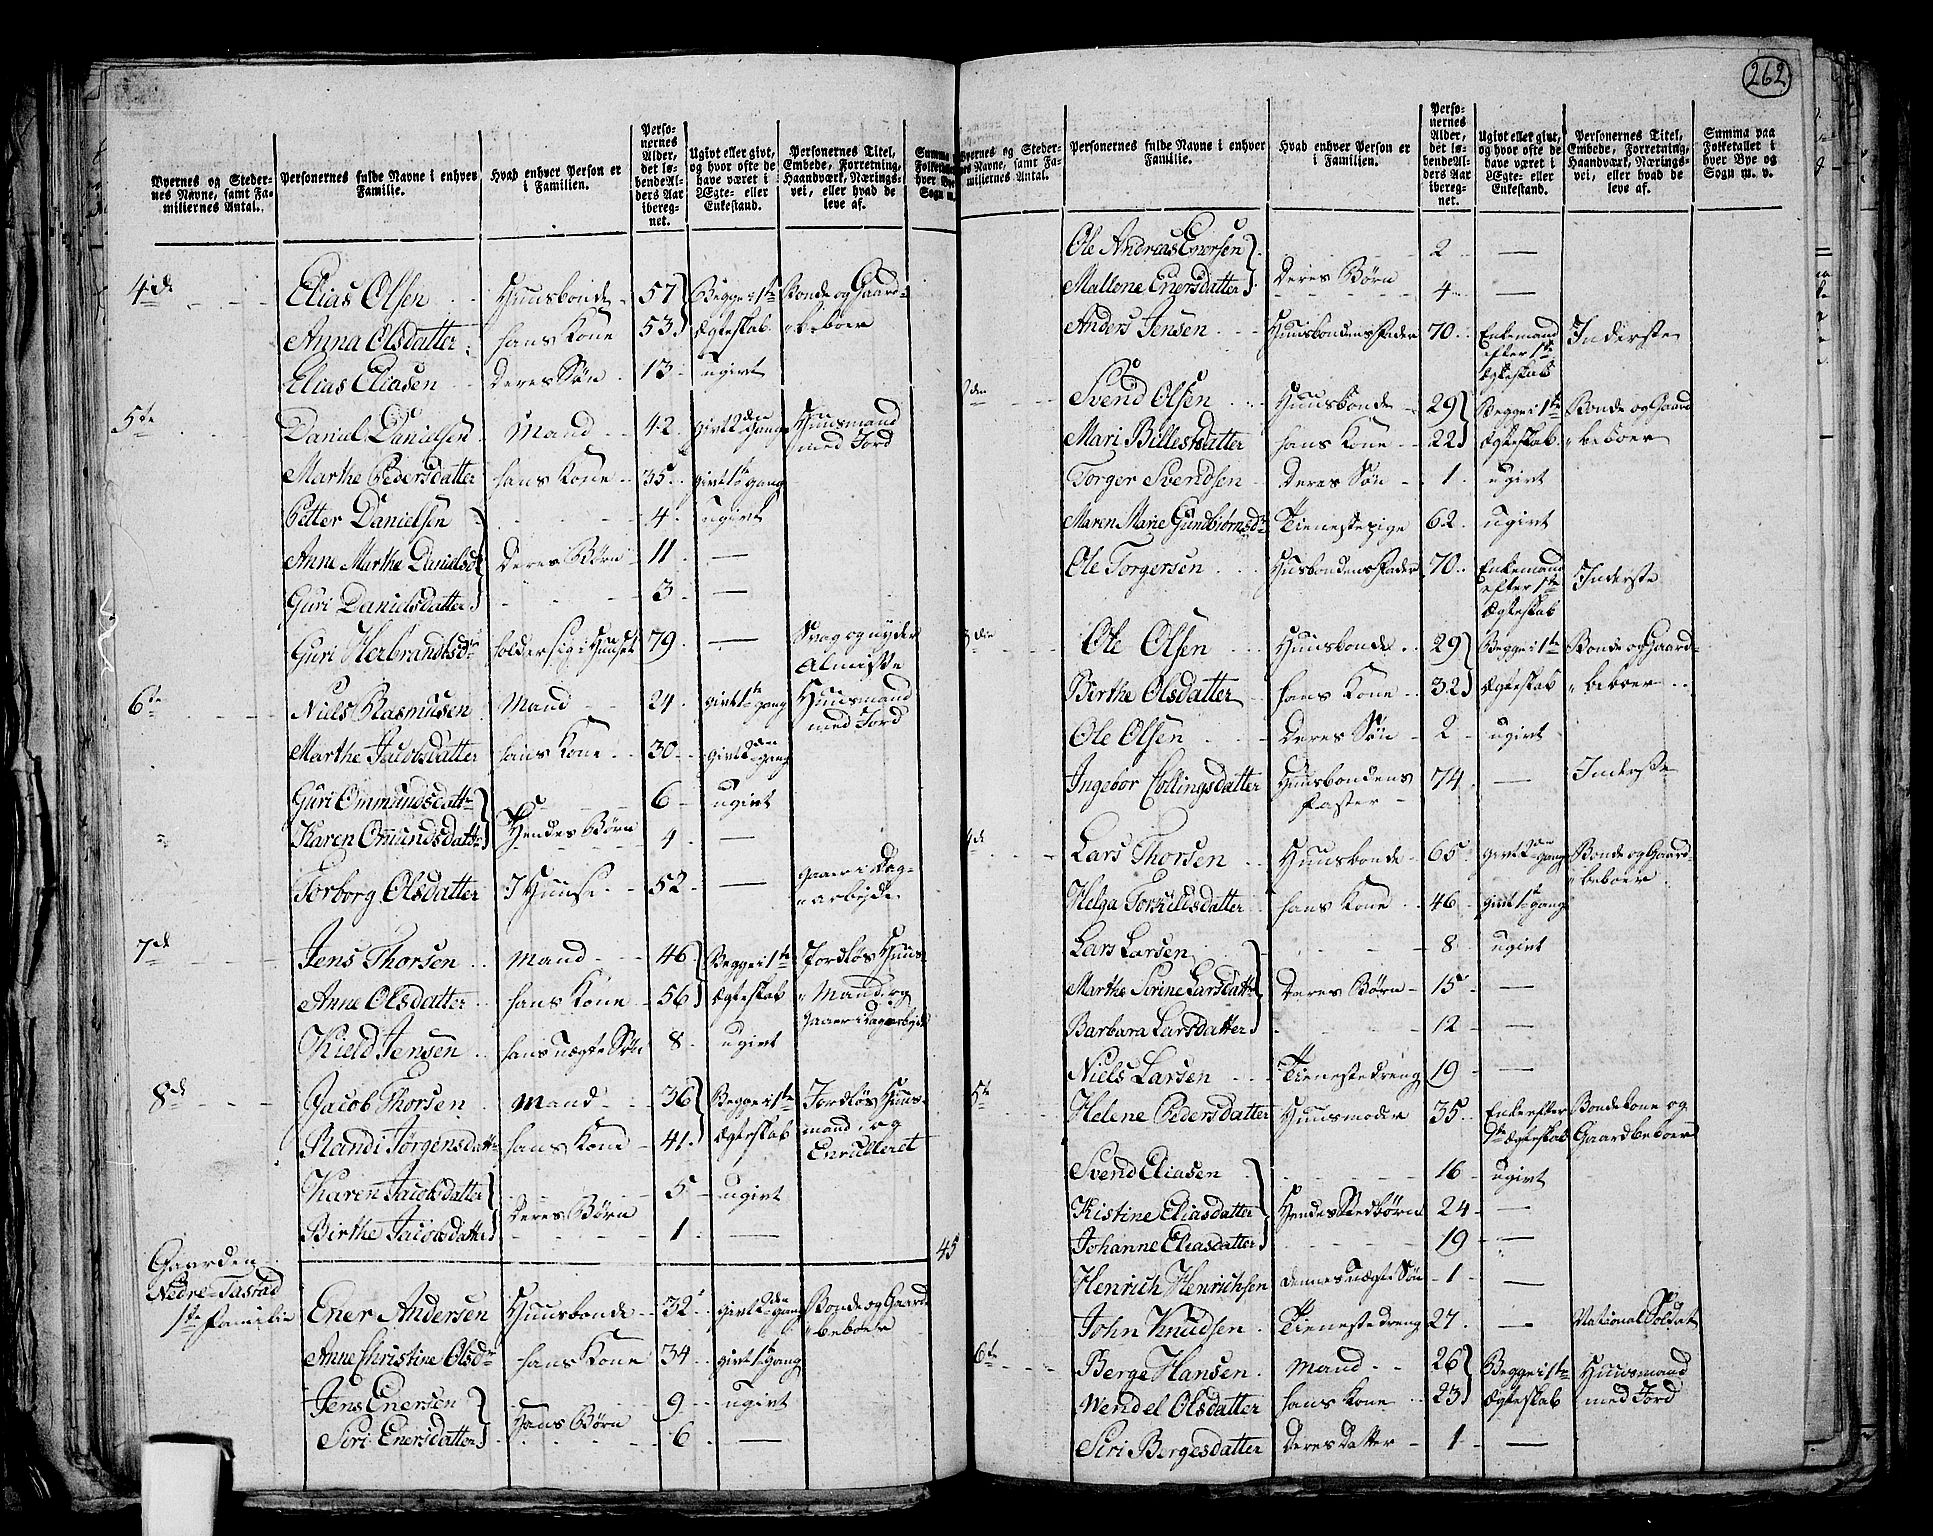 262
Byernes og Stedernes Navne, samt Familiernes Antal.
Personernes fulde Navne i enhver Familie.
Hvad enhver Person er i Familien.
Personernes Alder, det løbende Alders Aar iberegnet.
Ugivt eller givt, og hvor ofte de have været i Ægte- eller Enkestand.
Personernes Titel, Embede, Forretning, Haandværk, Næringsvei, eller hvad de leve af.
4de Elias Olsen Huusbonde 57 Begge i 1te Bonde og Gaard-
Anna Olsdatter hans Kone 53 Ægteskab beboer
Elias Eliasen Deres Søn 13 ugivt
5te Daniel Danielsen Mand 42 givt 2den Gang Huusmand med Jord
Marthe Pedersdatter hans Kone 35 givt 1te gang
Petter Danielsen 4 ugivt
Anne Marthe Danielsd Deres Børn 11 —
Guri Danielsdatter 3 —
Guri Herbrandtsdr holder sig i Huuset 79 — Svag og nyder Almisse
6te Niels Rasmusen Mand 24 givt 1te gang Huusmand med Jord
Marthe Jacobsdatter hans Kone 30 givt 2den gang
Guri Ommundsdattr 6 ugivt
Karen Omundsdattr Hendes Børn 4 —
Torborg Olsdatter I Huuse 52 — Gaaer i Dag-arbejde
7de Jens Thorsen Mand 46 Begge i 1te Jordløs Huus-
Anne Olsdatter hans Kone 56 Ægteskab Mand og Gaaer i dagarbejde
Kield Jensen hans uægte Søn 8 ugivt
8de Jacob Thorsen Mand 36 Begge i 1te Jordløs Huus-
Randi Jørgensdattr hans Kone 41 Ægteskab mand og Enrulleret
Karen Jacobsdatter 5 ugivt
Birthe Jacobsdatter Deres Børn 1 —
45
Gaarden
Nedre-Tastad
1te Familie Ener Andersen Huusbonde 32 givt 2den gang Bonde og Gaard-beboer
Anne Christine Olsdr hans Kone 34 givt 1te Gang
Jens Enersen 9 ugivt
Siri Enersdatter Hans Børn 6 —
Byernes og Stedernes Navne, samt Familiernes Antal.
Personernes fulde Navne i enhver Familie.
Hvad enhver Person er i Familien.
Personernes Alder, det løbende Alders Aar iberegnet.
Ugivt eller givt, og hvor ofte de have været i Ægte- eller Enkestand.
Personernes Titel, Embede, Forretning, Haandværk, Næringsvei, eller hvad de leve af.
Summa paa Folketallet i hver Bye og Sogn m. v.
Ole Andreas Enersen 2 —
Mallene Enersdatter Deres Børn 4 —
Anders Jensen Huusbondens Fader 70 Enkemand efter 1te Ægteskab Inderste
den Svend Olsen Huusbonde 29 Begge i 1te Bonde og Gaard
Mari Billesdatter hans Kone 22 Ægteskab beboer
Torger Svendsen Deres Søn 1 ugivt
Maren Marie Gundbiørnsdr Tienestepige 62 ugivt
Ole Torgersen Husbondens Fader 70 Enkemand efter 1te Ægteskab Inderste
3die Ole Olsen Huusbonde 29 Begge i 1te Bonde og Gaard-
Birthe Olsdatter hans Kone 32 Ægteskab beboer
Ole Olsen Deres Søn 2 ugivt
Ingebor Collingsdatter Huusbondens Faster 74 — Inderste
4de Lars Thorsen Huusbonde 65 givt 2den gang Bonde og Gaard-beboer
Helga Torkildsdatter hans Kone 46 givt 1te gang
Lars Larsen 8 ugivt
Marthe Serine Larsdattr Deres Børn 15 —
Barbara Larsdatter 12 —
Niels Larsen Tienestedreng 19 —
5te Helene Pedersdatter Huusmoder 35 Enke efter 1te Ægteskab Bondekone og Gaardbeboer
Svend Eliasen 16 ugivt
Kistine Eliasdatter Hendes Stedbørn 24 —
Johanne Eliasdatter 19 —
Henrich Henrichsen dennes uægte Søn 1 —
John Knudsen Tienestedreng 27 — National Soldat
6te Berge Hansen Mand 26 Begge i 1te Huusmand
Wendel Olsdatter hans Kone 23 Ægteskab med Jord
Siri Bergesdatter Deres Datter 1 —